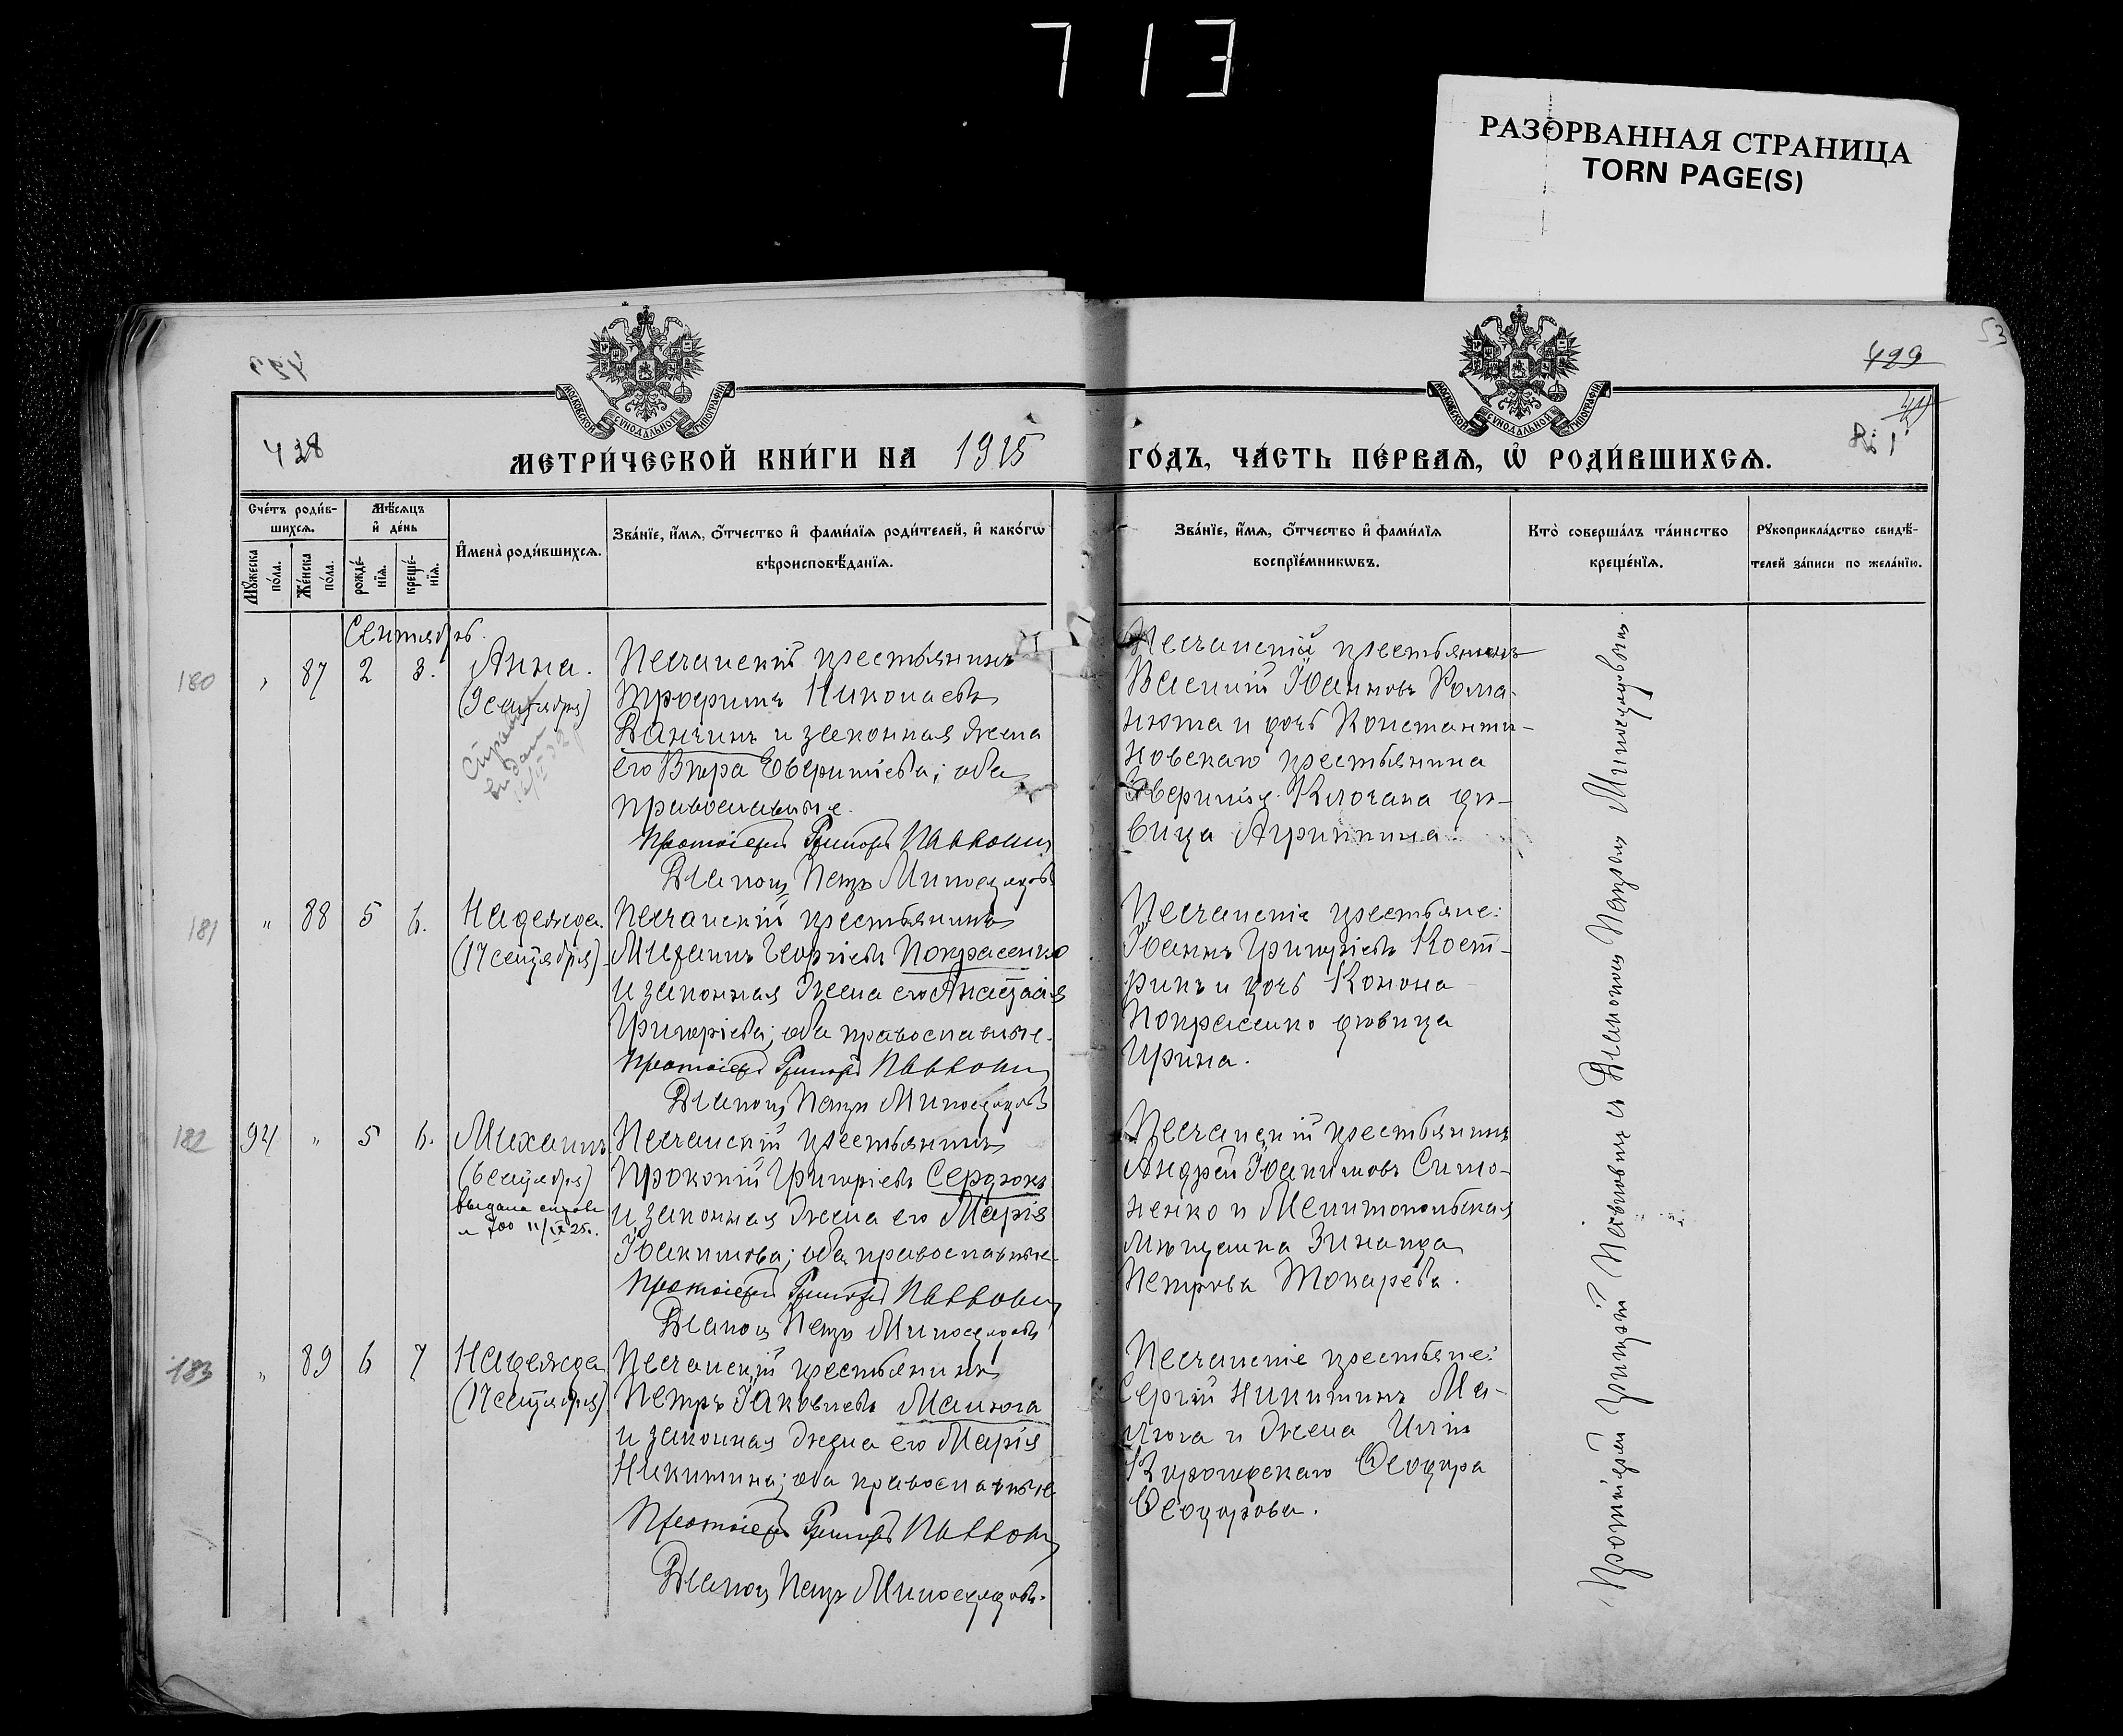 713
РАЗОРВАННАЯ СТРАНИЦА
TORN PAGE(S)
53
429
428
МОСКОВСКОЙ СѴНОДАЛЬНОЙ ТИПОГРАФІИ
МОСКОВСКОЙ СѴНОДАЛЬНОЙ ТИПОГРАФІИ
МЕТРИ́ЧЕСКОЙ КНИ́ГИ НА 1915 ГО́ДЪ, ЧА́СТЬ ПЕ́РВАЯ, Ѡ҆ РОДИ́ВШИХСЯ.
Сче́тъ роди́в-
шихся.
Мѣ́сяцъ
и҆ де́нь
Мꙋ́жеска по́ла.
Же́нска по́ла.
рожде́-нїя.
креще́-нїя.
И҆мена̀ роди́вшихся.
Зва́нїе, и҆́мя, ѻ҆́тчество и҆ фами́лїя роди́телей, и҆ како́гѡ
вѣроисповѣ́данїя.
Зва́нїе, и҆́мя, ѻ҆́тчество и҆ фами́лїя
воспрїе́мникѡвъ.
Кто̀ соверша́лъ та́инство
креще́нїя.
Рꙋкоприкла́дство свидѣ́-
телей за́писи по жела́нїю.
Сентябрь.
180 " 87 2 3. Анна.
(9 сентября)
Песчанскій крестьянинъ
Трофимъ Николаевъ
Данчинъ и законная жена
его Вѣра Евфиміева; оба
православные.
Протоіерей Григорій Павлович
Діаконъ Петръ Милосердовъ
Песчанскій крестьянинъ
Василій Іоанновъ Рома-
нюта и дочь Константи-
новскаго крестьянина
Евфимія Клочана дѣ-
вица Агриппина.
181 " 88 5 6. Надежда.
(17 сентября)
Песчанскій крестьянинъ
Михаилъ Георгіевъ Покрасенко
и законная жена его Анастасія
Григоріева; оба православные.
Протоіерей Григорій Павлович
Діаконъ Петръ Милосердовъ
Песчанскіе крестьяне:
Іоаннъ Григоріевъ Кост-
рикъ и дочь Конона
Покрасенко дѣвица
Ирина.
182 94 " 5 6. Михаилъ
(6 сентября)
выдана справк
№ 700 11/IX 25г.
Песчанскій крестьянинъ
Прокопій Григоріевъ Сердюкъ
и законная жена его Марія
Іоакимова; оба православные.
Протоіерей Григорій Павлович
Діаконъ Петръ Милосердовъ
Песчанскій крестьянинъ
Андрей Іоакимовъ Симо-
ненко и Мелитопольская
мѣщанка Зинаида
Петрова Токарева.
183 " 89 6 7 Надежда
(17 сентября)
Песчанскій крестьянинъ
Петръ Іаковлевъ Малюга
и законная жена его Марія
Никитина; оба православные
Протоіерей Григорій Павлович
Діаконъ Петръ Милосердовъ.
Песчанскіе крестьяне:
Сергій Никитинъ Ма-
люга и жена Иліи
Ѳеодора
Ѳеодорова.
Протоіерей Григорій Павловичъ съ Діакономъ Петромъ Милосердовымъ.